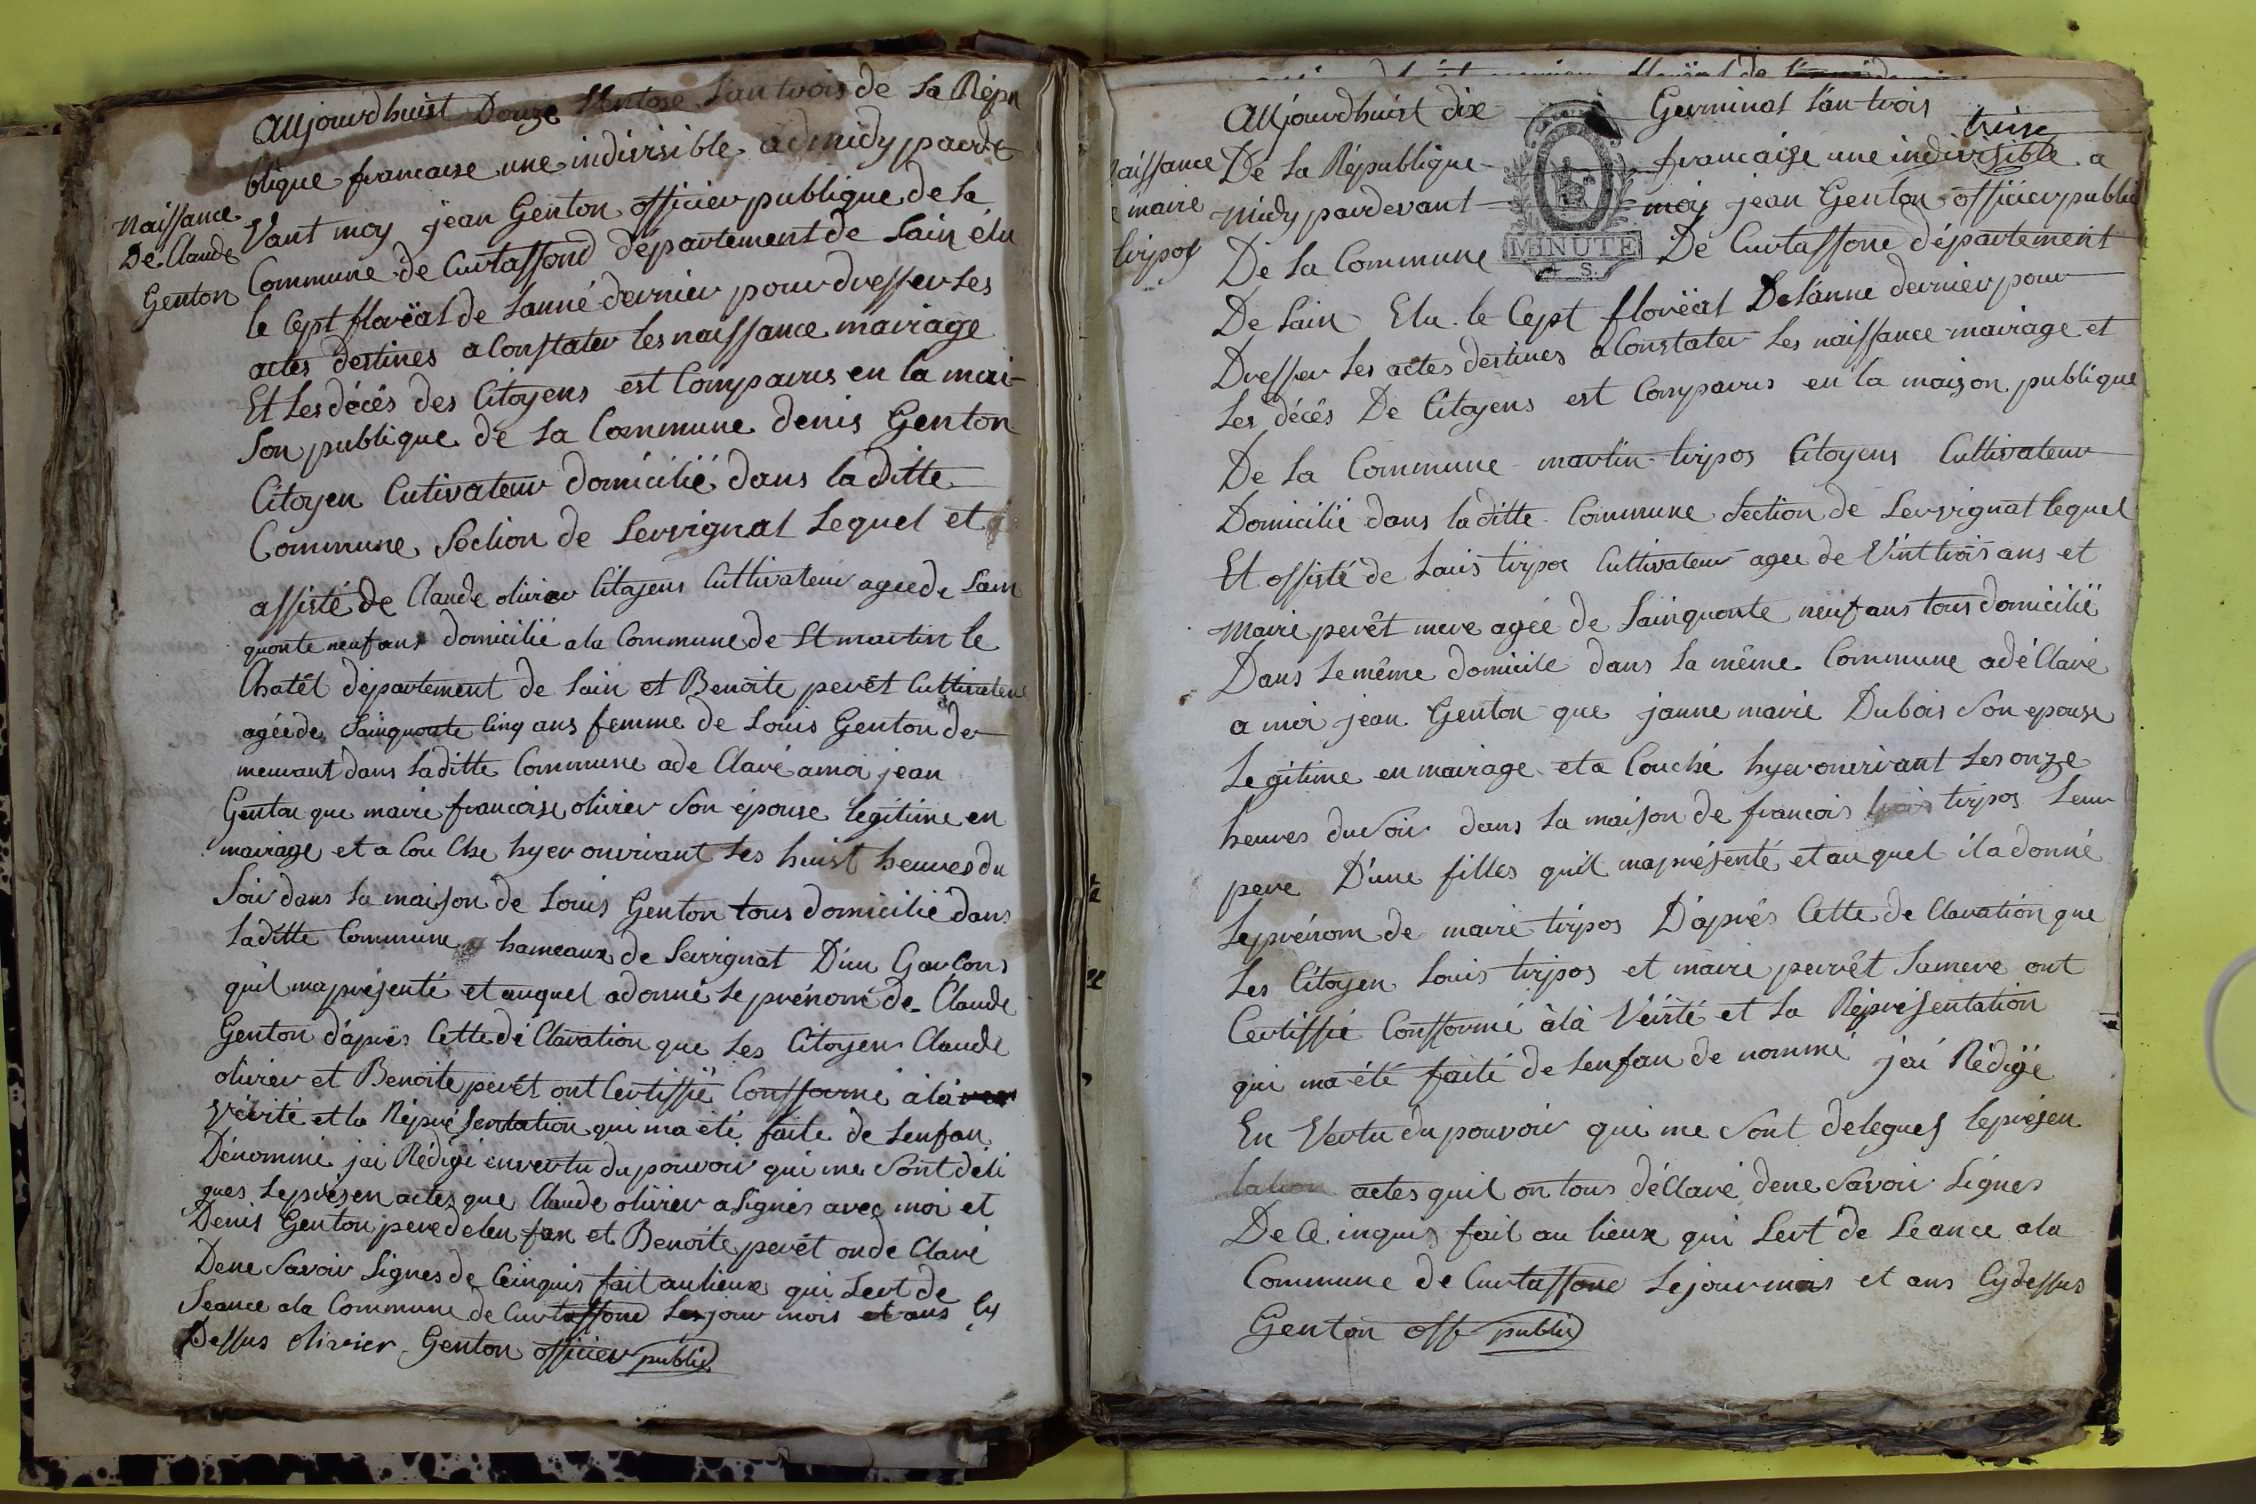 Aujourdhuist Douze Ventose Lan trois de La Répu
blique francaise une indivisible a dmidy parde
Naissance
De Claude
Genton
Vant moy jean Genton officier publique de La
Commune de Curtaffond département de Lain élu
le Cept floréal de Lanné dernier pour dresser Les
actes destines a Constater les naissance mairage
Et Les décés des Citoyens est Comparus en la mai-
Son publique de La Commune denis Genton
Citoyen Cutivateur domicilié dans la ditte
Commune Section de Servignat Lequel et
assisté de Claude olivier Citoyens Cultivateur agée de Sain
quonte neuf ans domicilié a la Commune de St martin le
Chatêt département de Lain et Benoite perêt Cultivateur
agée de Sainquonte Cinq ans femme de Louis Genton de
meurant dans Laditte Commune a de Claré a moi jean
Genton que maire francoise olivier Son épouse legitime en
mairage et a Cou Che hyer onvivant Les huist heures du
Soir dans La maison de Louis Genton tous domicilié dans
Laditte Commune hameaux de Servignat D'un Garçons
quil ma présenté et auquel a donné Le prénom de Claude
Genton d'aprés Cette dé Claration que Les Citoyens Claude
olivier et Benoite perêt ont Certiffié Confformé à la
vérité et la Réprésentation qui ma été faite de Lenfan
Dénommé jai Rédigé en vertu du pouvoir qui me Sont déli
gues Le présen actes que Claude olivier a Signés avec moi et
Denis Genton pere de len fan et Benoite perêt on de Claré
Dene Savoir Signes de Ceinquis fait au lieux qui Sert de
Seance a la Commune de Curtaffond Les jour mois et ans Cy
Dessus olivier Genton officier public
Aujourdhuist dix Germinal Lan trois
treise
aissance
maire
tirpos
De La République francaise une indivisible a
Midy pardevant moi jean Genton officier public
De La Commune De Curtaffone département
MINUTE
De Lain Elu le Cept floréal De Lanne dernier pour
Dresser Les actes destines a Constater Les naissance mairage et
Les décés De Citoyens est Comparus en la maison publique
De La Commune martin tirpos Citoyens Cultivateur
Domicilié dans laditte Commune Section de Servignat lequel
Et assisté de Louis tirpos Cultivateur agée de Vint trois ans et
Mairi perêt mere agée de Sainquonte neuf ans tous domicilié
Dans Le même domicile dans La même Commune a dé Claré
a moi jean Genton que janne marie Dubois Son epouse
Legitime en mairage et a Couché hyer onvivant Les onze
heures du Soir dans La maison de francois tirpos Leur
pere D'une filles quil ma présenté et au quel il a donné
Le prénom de maire tirpos D'aprés Cette de Claration que
Les Citoyen Louis tirpos et maire perrêt Sa mere ont
Certiffié Confformé à la Vérité et La Réprésentation
qui ma été faité de Lenfan de nommé jai Rédigé
En Vertu du pouvoir qui me Sont delegues le présen
tation actes quil on tous déClaré dene Savoir Signes
De Ce inquis fait au lieux qui Sert de Seance a la
Commune de Curtaffone Le jour mois et ans Cy dessus
Genton off public